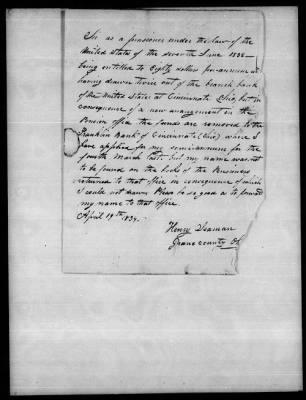 Sir as a pensioner under the law of the
United States of the seventh June 1832
being entitled to Eighty dollars per annum &
having drawn twice out of the branch bank
of the United States at Cincinnati Ohio, but in
consequence of a new arrangement in the
Pension office the funds are removed to the
Franklin Bank of Cincinnati (Ohio) where I
have applied for my semi-annum for the
fourth March last. but my name was not
to be found on the books of the Pensioners
returned to that office in consequence of which
I could not draw. Please be so good as to forward
my name to that office.
April 19th 1834.
Henry Seaman
county